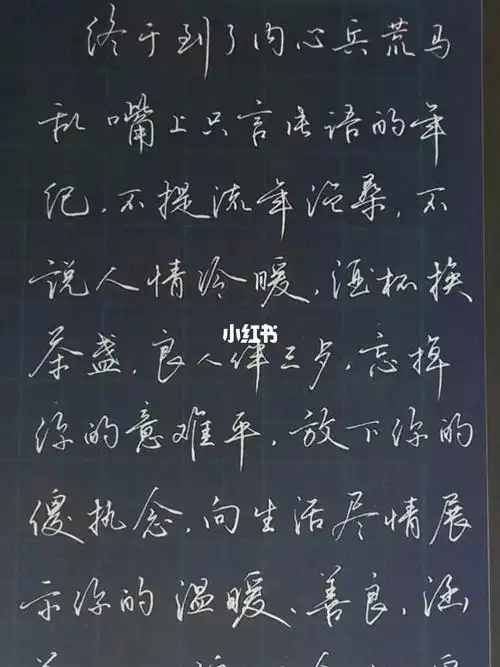 终于到了内心兵荒马
乱嘴上只言片语的年
纪,不提流年沧桑,不
说人情冷暖,酒杯换
茶盏,良人伴三步,忘掉
小红书
你的意难平,放下你的
傻执念,向生活尽情展
示你的温暖、善良,涵